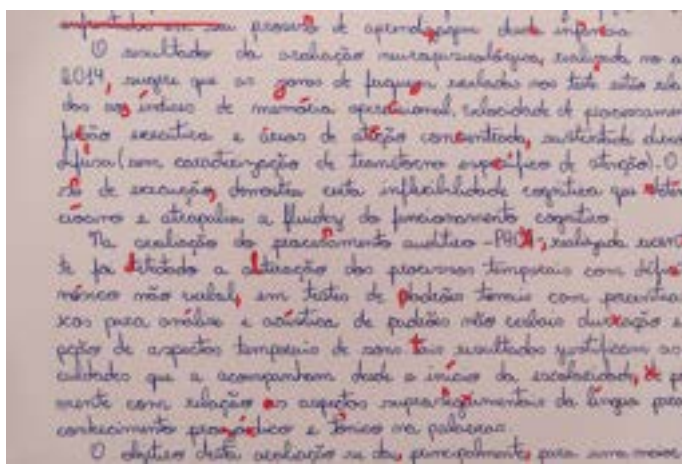 enfrentadas em seu processo de aprendizagem desde infância
O resultado da avaliação neuropsicológica, realizada no a
2014, sugere que as zonas de fraqueza reveladas nos teste estão rela
dos aos índices de memória operacional, velocidade de processamen
função executiva e áreas de atenção concentrada, sustentada
difusa (sem caracterização de transtorno específico de atenção). O
de execução, demostra certa inflexibilidade cognitiva que
e atrapalha a fluidez do funcionamento cognitivo
Na avaliação do processamento auditivo - realizada recent
te foi detectado a alteração dos processos temporais com
não verbal, em testes de padrões tonais com
xos para análise e acústica de padrões não verbais duração e
pção de aspectos temporais de sons tais resultados justificam as
culdades que a acompanham desde o início da escolaridade, de
mente com relação os aspectos suprasegmentais da língua para
conhecimento prosódico e tônico na palavras.
O objetivo desta avaliação se da, principalmente, para uma maior